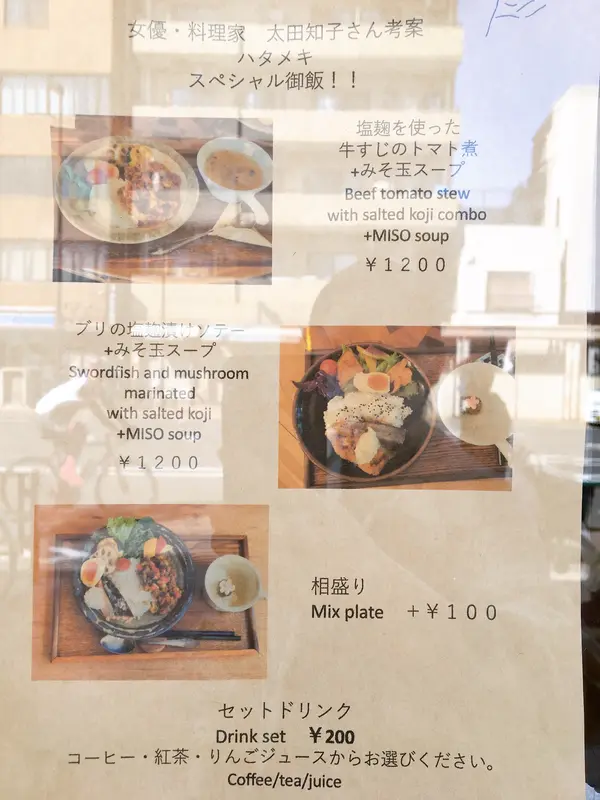 女優・料理家　太田知子さん考案
ハタメキ
スペシャル御飯！！
塩麹を使った
牛すじのトマト煮
+みそ玉スープ
Beef tomato stew
with salted koji combo
+MISO soup
￥１２００
ブリの塩麹漬けソテー
+みそ玉スープ
Swordfish and mushroom
marinated
with salted koji
+MISO soup
￥１２００
相盛り
Mix plate　＋￥１００
セットドリンク
Drink set　￥200
コーヒー・紅茶・りんごジュースからお選びください。
Coffee/tea/juice